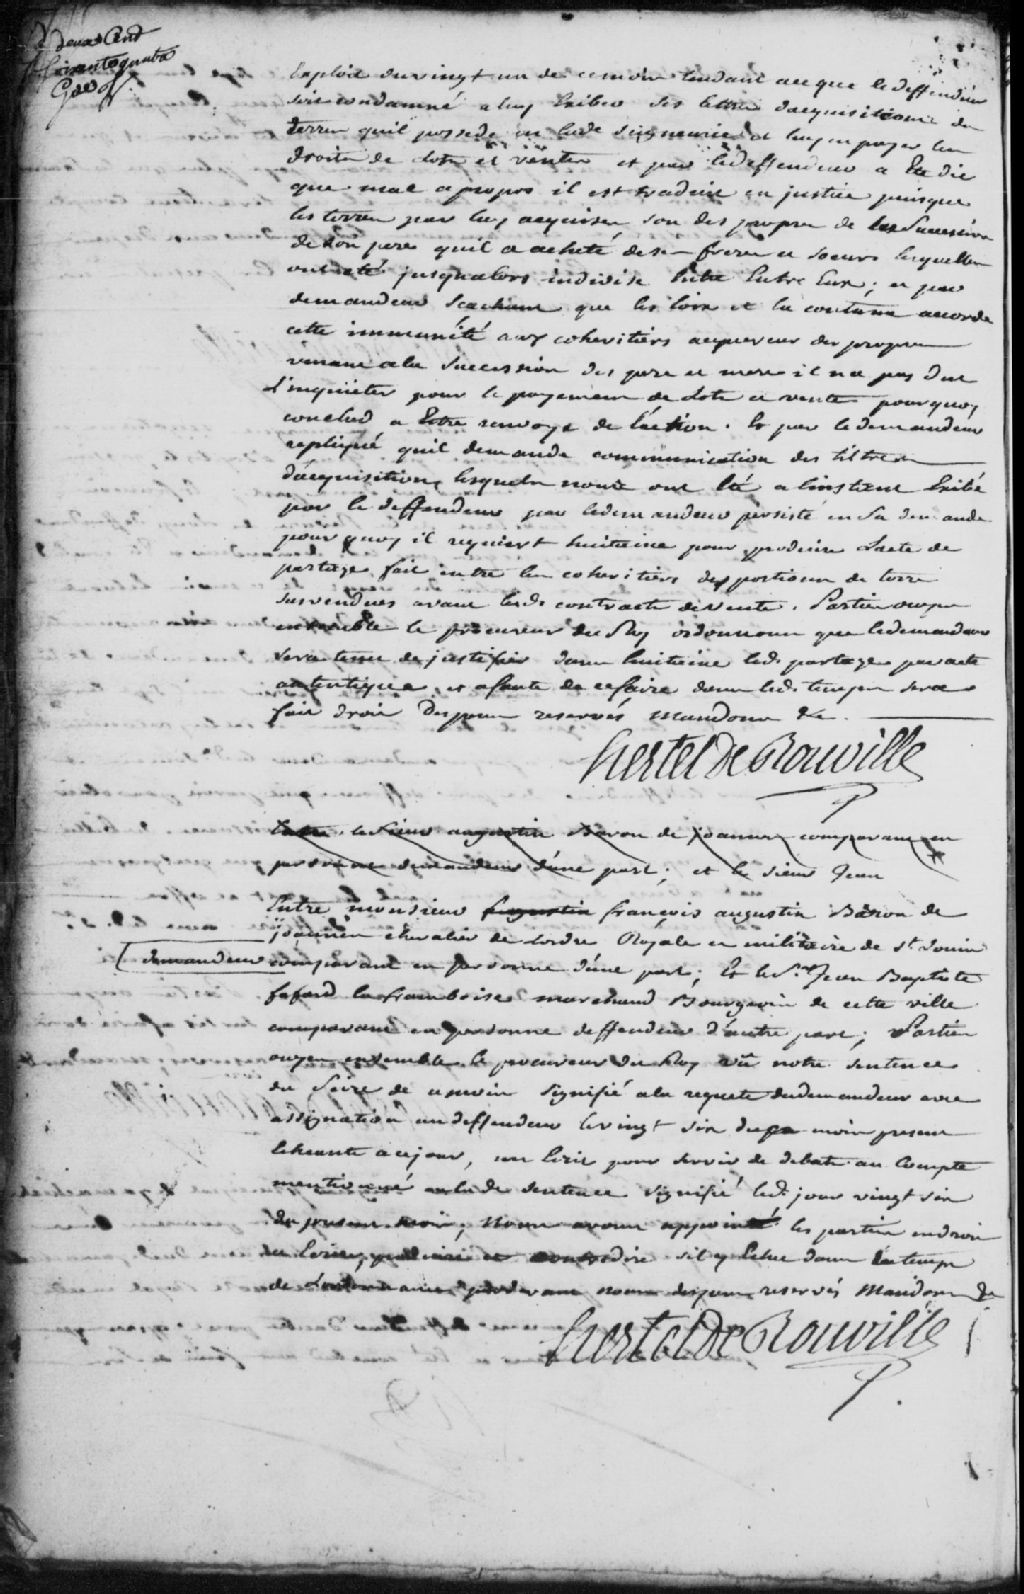 deux Cent
soixante quatre
Exploit du vingt un de ce mois tendant acque le deffendeur
soit condamné a luy Exiber ses lettres dacquisitions des
terres quil possede en lade seigneurie et luy en payer les
droits de lots et ventes et par le deffendeur a Ete dit
que mal apropos il est traduit en justice puisque
les terres par luy acquises son des propres de la Succession
de son pere quil a acheté de ses freres et soeurs lesquelles
ont eté jusqualors indivise Entre Eux ; et que
demandeur scachant que les loix et la coutume accorde
cette immunité aux coheritiers acquereur des propres
venant ala succession des pere et mere il na pas due
L'inquieter pour le payement de Lots et vente pourquoy
conclud a Estre renvoyé de l'action. Et par le demandeur
repliqué quil demande communication des tiltres
d'acquisitions lesquels nous ont Eté a linstant Exibé
par le deffendeur par ledemandeur persisté en sa demande
pourquoy il requiert huitaine pour produire Lacte de
partage fait entre les coheritiers des portions de terre
susvendues avant lesds contracts de vente. Parties ouyes
ensemble le procureur du Roy ordonnons que ledemandeur
sera tenu de justifier dans huitaine led. partage par acte
autentique, et afaute de ce faire dans led. temps sera
fait droit Depens reservés Mandons &c.
Hertel De Rouville
Entre le Sieur augustin Baron de Joannes comparant en
personne demandeur d'une part ; et le sieur Jean
Entre monsieur Augustin françois augustin Baron de
joannes chevalier de Lordre Royale et militaire de St Louis
demandeur
comparant en personne d'une part ; Et le Sr. Jean Baptiste
fafard laframboise marchand Bourgeois de cette ville
comparant en personne deffendeur d'autre part ; Parties
ouyes ensemble le procureur du Roy vû notre sentence
du Seize de cemois signifié ala requete dudemandeur avec
assignation audeffendeur levingt six du mois present
Echeante acejour, un Ecrit pour servir de debats au Compte
mentionné enlade sentence signifié led. jour vingt six
du present mois ; Nous avons appointé les parties en droit
a Ecrire, produire et contredire sil y Echet dans le temps
de Lordonnance pardevant nous depens reservés Mandons &c
Hertel De Rouville